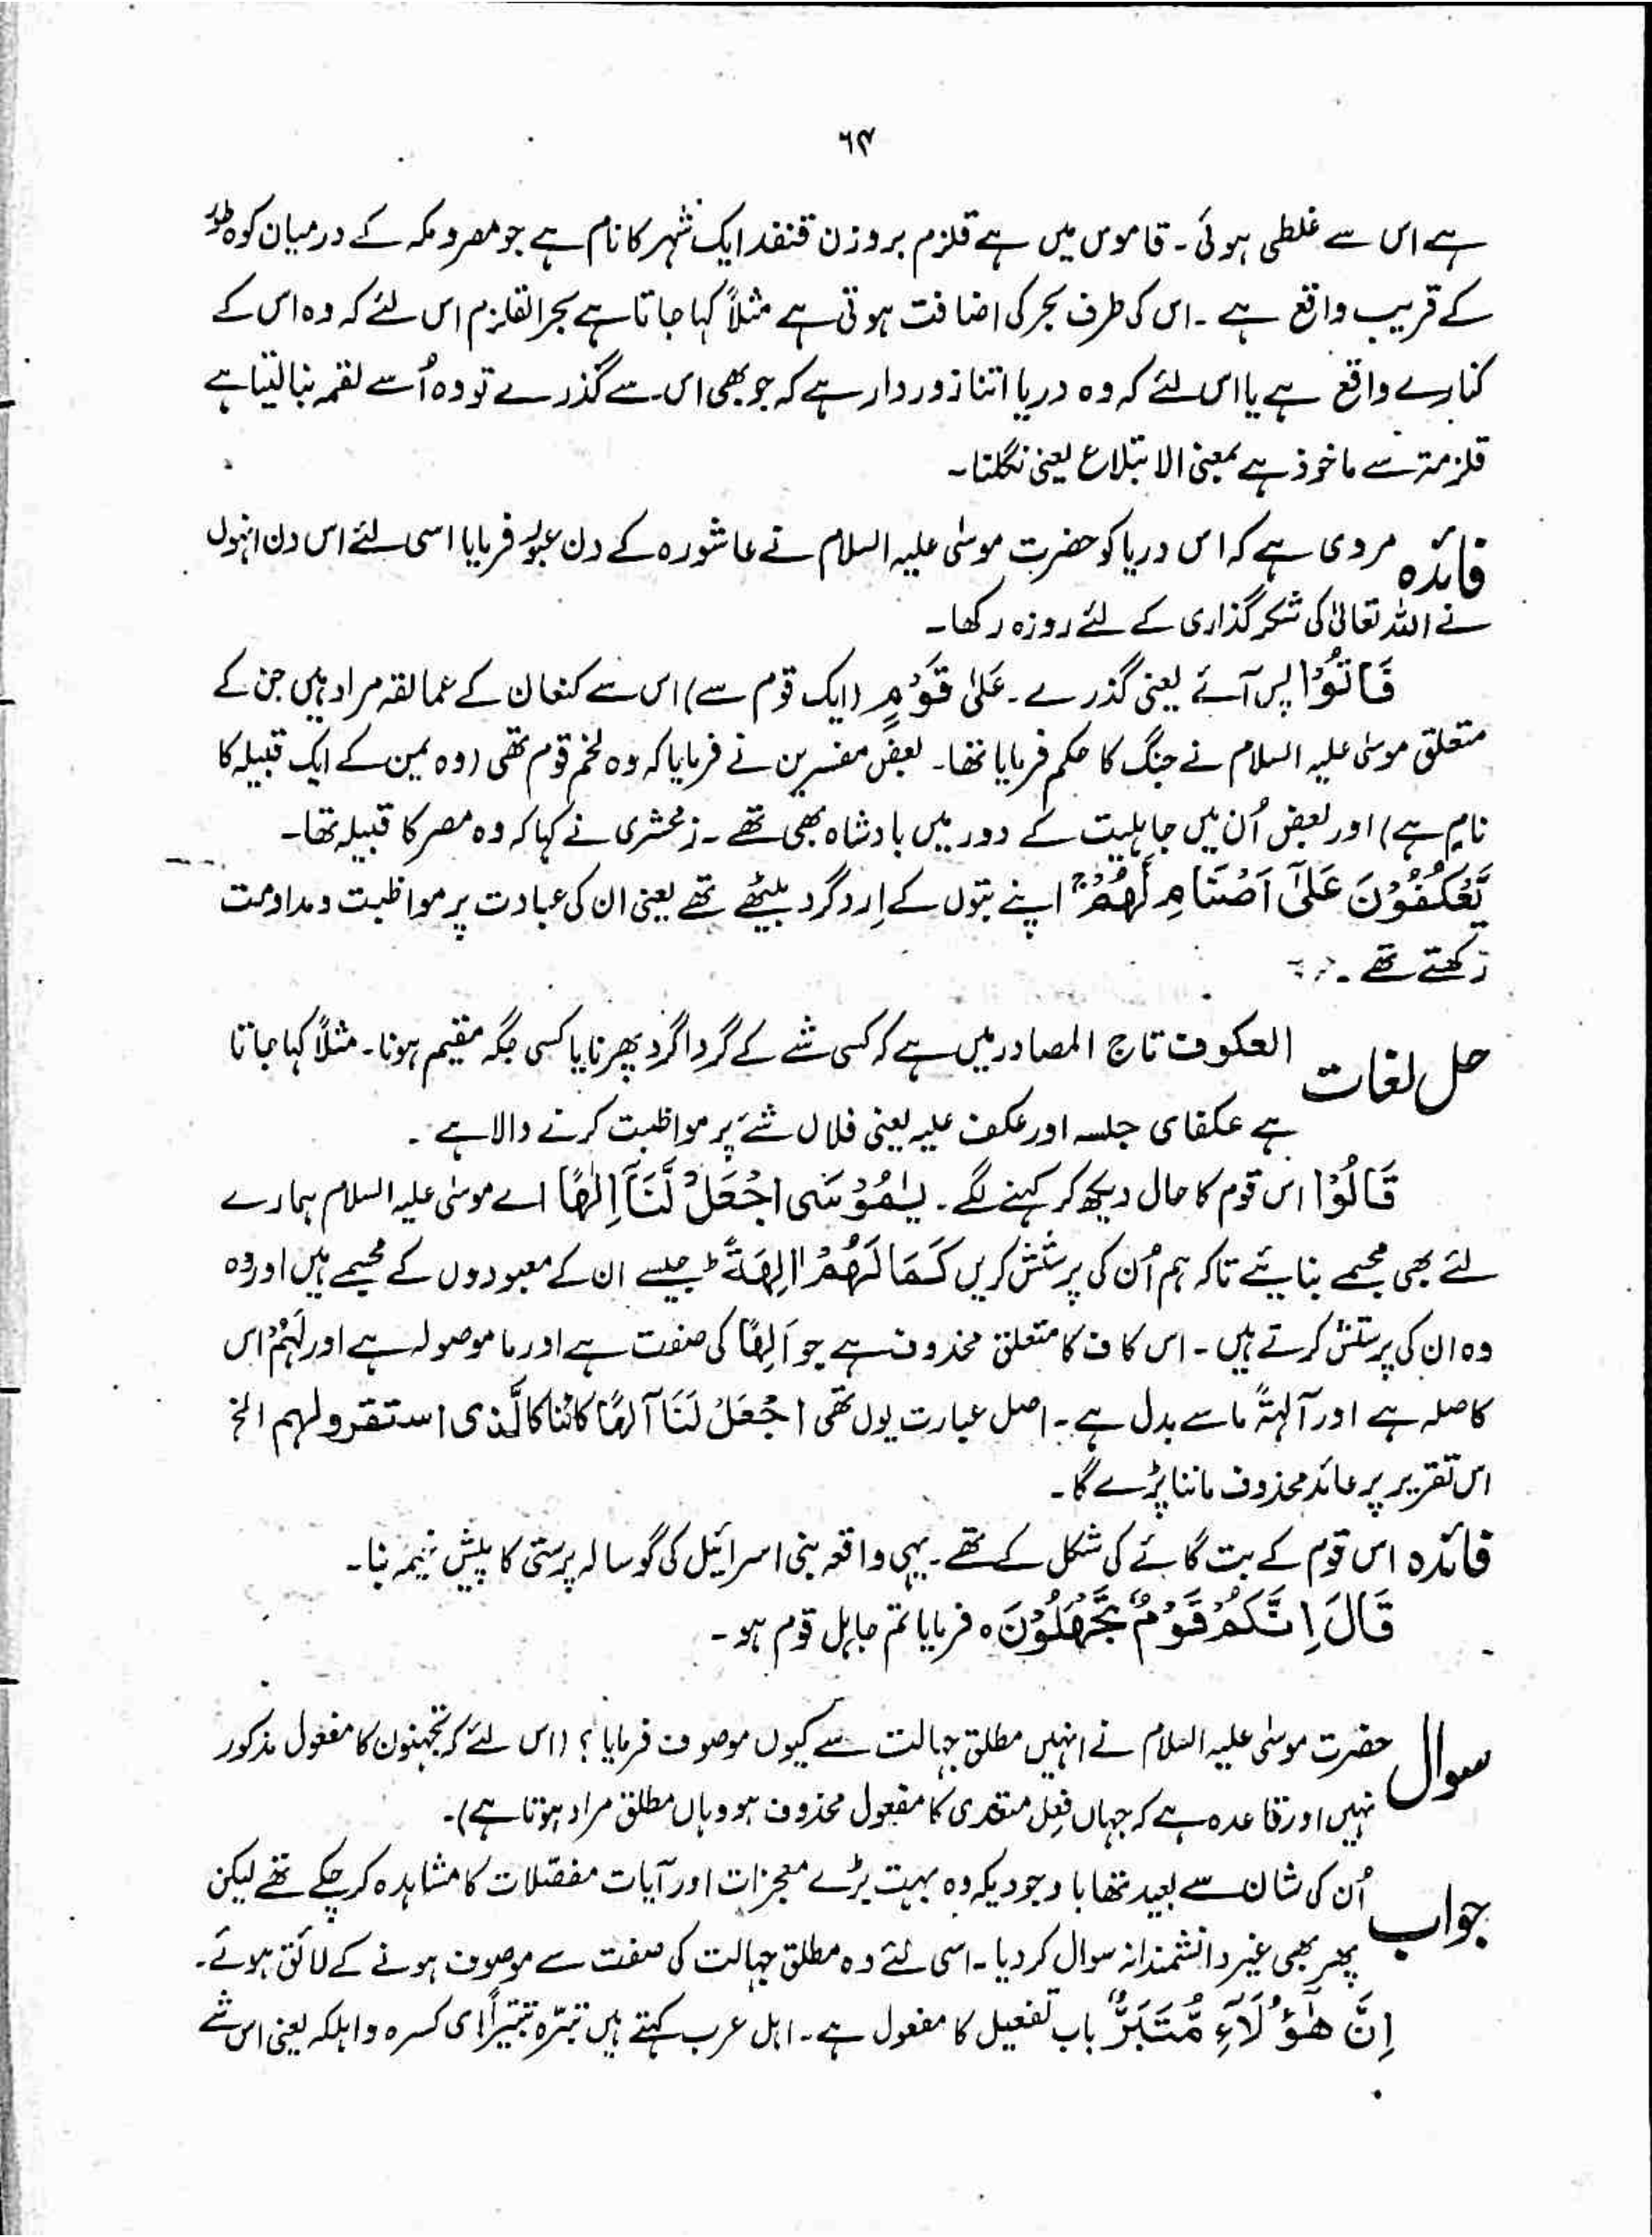 ٦٤
ہے اس سے غلطی ہوئی۔ قاموس میں ہے قلزم بروزن قنفد ایک شہر کا نام ہے جو مصر و مکہ کے درمیان کوہ طور
کے قریب واقع ہے۔ اس کی طرف بحر کی اضافت ہوتی ہے مثلاً کہا جاتا ہے بحر القلزم اس لئے کہ وہ اس کے
کنارے واقع ہے یا اس لئے کہ وہ دریا اتنا زوردار ہے کہ جو بھی اس سے گذرے تو وہ اُسے لقمہ بنا لیتا ہے
قلزمۃ سے ماخوذ ہے بمعنی الابتلاع یعنی نگلنا۔
فائدہ مروی ہے کہ اس دریا کو حضرت موسیٰ علیہ السلام نے عاشورہ کے دن عبور فرمایا اسی لئے اس دن انہوں
نے اللہ تعالیٰ کی شکر گذاری کے لئے روزہ رکھا۔
فَاَتَوْا پس آئے یعنی گذرے۔ عَلٰی قَوْمٍ (ایک قوم سے) اس سے کنعان کے عمالقہ مراد ہیں جن کے
متعلق موسیٰ علیہ السلام نے جنگ کا حکم فرمایا تھا۔ بعض مفسرین نے فرمایا کہ وہ لخم قوم تھی (وہ یمن کے ایک قبیلہ کا
نام ہے) اور بعض اُن میں جاہلیت کے دور میں بادشاہ بھی تھے۔ زمخشری نے کہا کہ وہ مصر کا قبیلہ تھا۔
یَّعْکُفُوْنَ عَلٰۤی اَصْنَامٍ لَّهُمْ ۚ اپنے بتوں کے اِردگرد بیٹھے تھے یعنی ان کی عبادت پر مواظبت و مداومت
رکھتے تھے۔
حل لغات العکوف تاج المصادر میں ہے کہ کسی شے کے گرداگرد پھرنا یا کسی جگہ مقیم ہونا۔ مثلاً کہا جاتا
ہے عکفای جلسہ اور عکف علیہ یعنی فلاں شئے پر مواظبت کرنے والا ہے۔
قَالُوْا اس قوم کا حال دیکھ کر کہنے لگے۔ یٰمُوْسَی اجْعَلْ لَّنَاۤ اِلٰهًا اے موسیٰ علیہ السلام ہمارے
لئے بھی مجسمے بنایئے تاکہ ہم اُن کی پرستش کریں کَمَا لَهُمْ اٰلِهَةٌ ؕ جیسے ان کے معبودوں کے مجسمے ہیں اور وہ
وہ ان کی پرستش کرتے ہیں۔ اس کاف کا متعلق محذوف ہے جو اَلِھًا کی صفت ہے اور ما موصولہ ہے اور لَہُمْ اس
کا صلہ ہے اور آلہۃً ما سے بدل ہے۔ اصل عبارت یوں تھی اجْعَلْ لَنَا آلھًا کائنا کالَّذی استقرو لہم الخ
اس تقریر پر عائد محذوف ماننا پڑے گا۔
فائدہ اس قوم کے بت گائے کی شکل کے تھے۔ یہی واقعہ بنی اسرائیل کی گوسالہ پرستی کا پیش خیمہ بنا۔
قَالَ اِنَّکُمْ قَوْمٌ تَجْهَلُوْنَ ہ فرمایا تم جاہل قوم ہو۔
سوال حضرت موسیٰ علیہ السلام نے انہیں مطلق جہالت سے کیوں موصوف فرمایا؟ (اس لئے کہ تجہلون کا مفعول مذکور
نہیں اور قاعدہ ہے کہ جہاں فعل متعدی کا مفعول محذوف ہو وہاں مطلق مراد ہوتا ہے)۔
جواب اُن کی شان سے بعید تھا باوجودیکہ وہ بہت بڑے معجزات اور آیات مفصّلات کا مشاہدہ کر چکے تھے لیکن
پھر بھی غیر دانشمندانہ سوال کر دیا۔ اسی لئے وہ مطلق جہالت کی صفت سے موصوف ہونے کے لائق ہوئے۔
اِنَّ هٰۤؤُلَآءِ مُتَبَّرٌ باب تفعیل کا مفعول ہے۔ اہل عرب کہتے ہیں تبّرہ تتبیراً ای کسرہ و اہلکہ یعنی اس شے